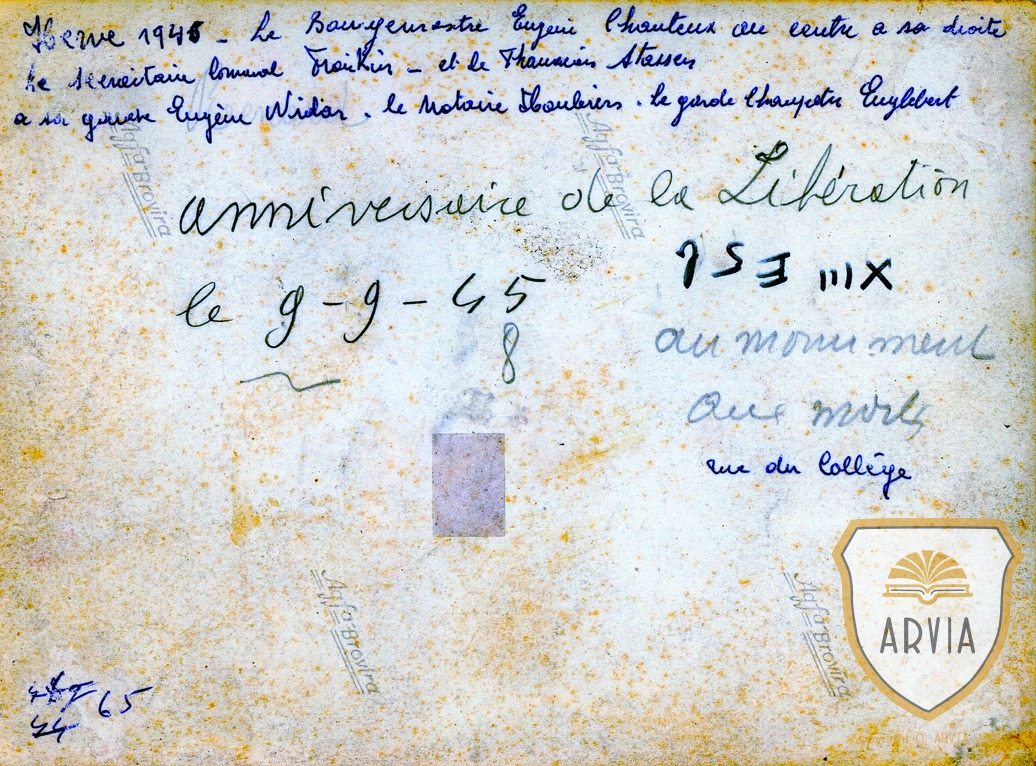 Herve 1945 - Le Bourgemestre Eugène Chanteux au centre a sa droite
Le secretaire Communal Frankin - et de Thanacien Stassen
a sa gauche Eugène Nidar. le Notaire Haubiers. Le garde Champetre Englebert
anniversaire de la Libération
le 9-9-45
8
au monument
aux morts
rue du Collège
Agfa-Brovira
Agfa-Brovira
Agfa-Brovira
Agfa-Brovira
65
44
ARVIA